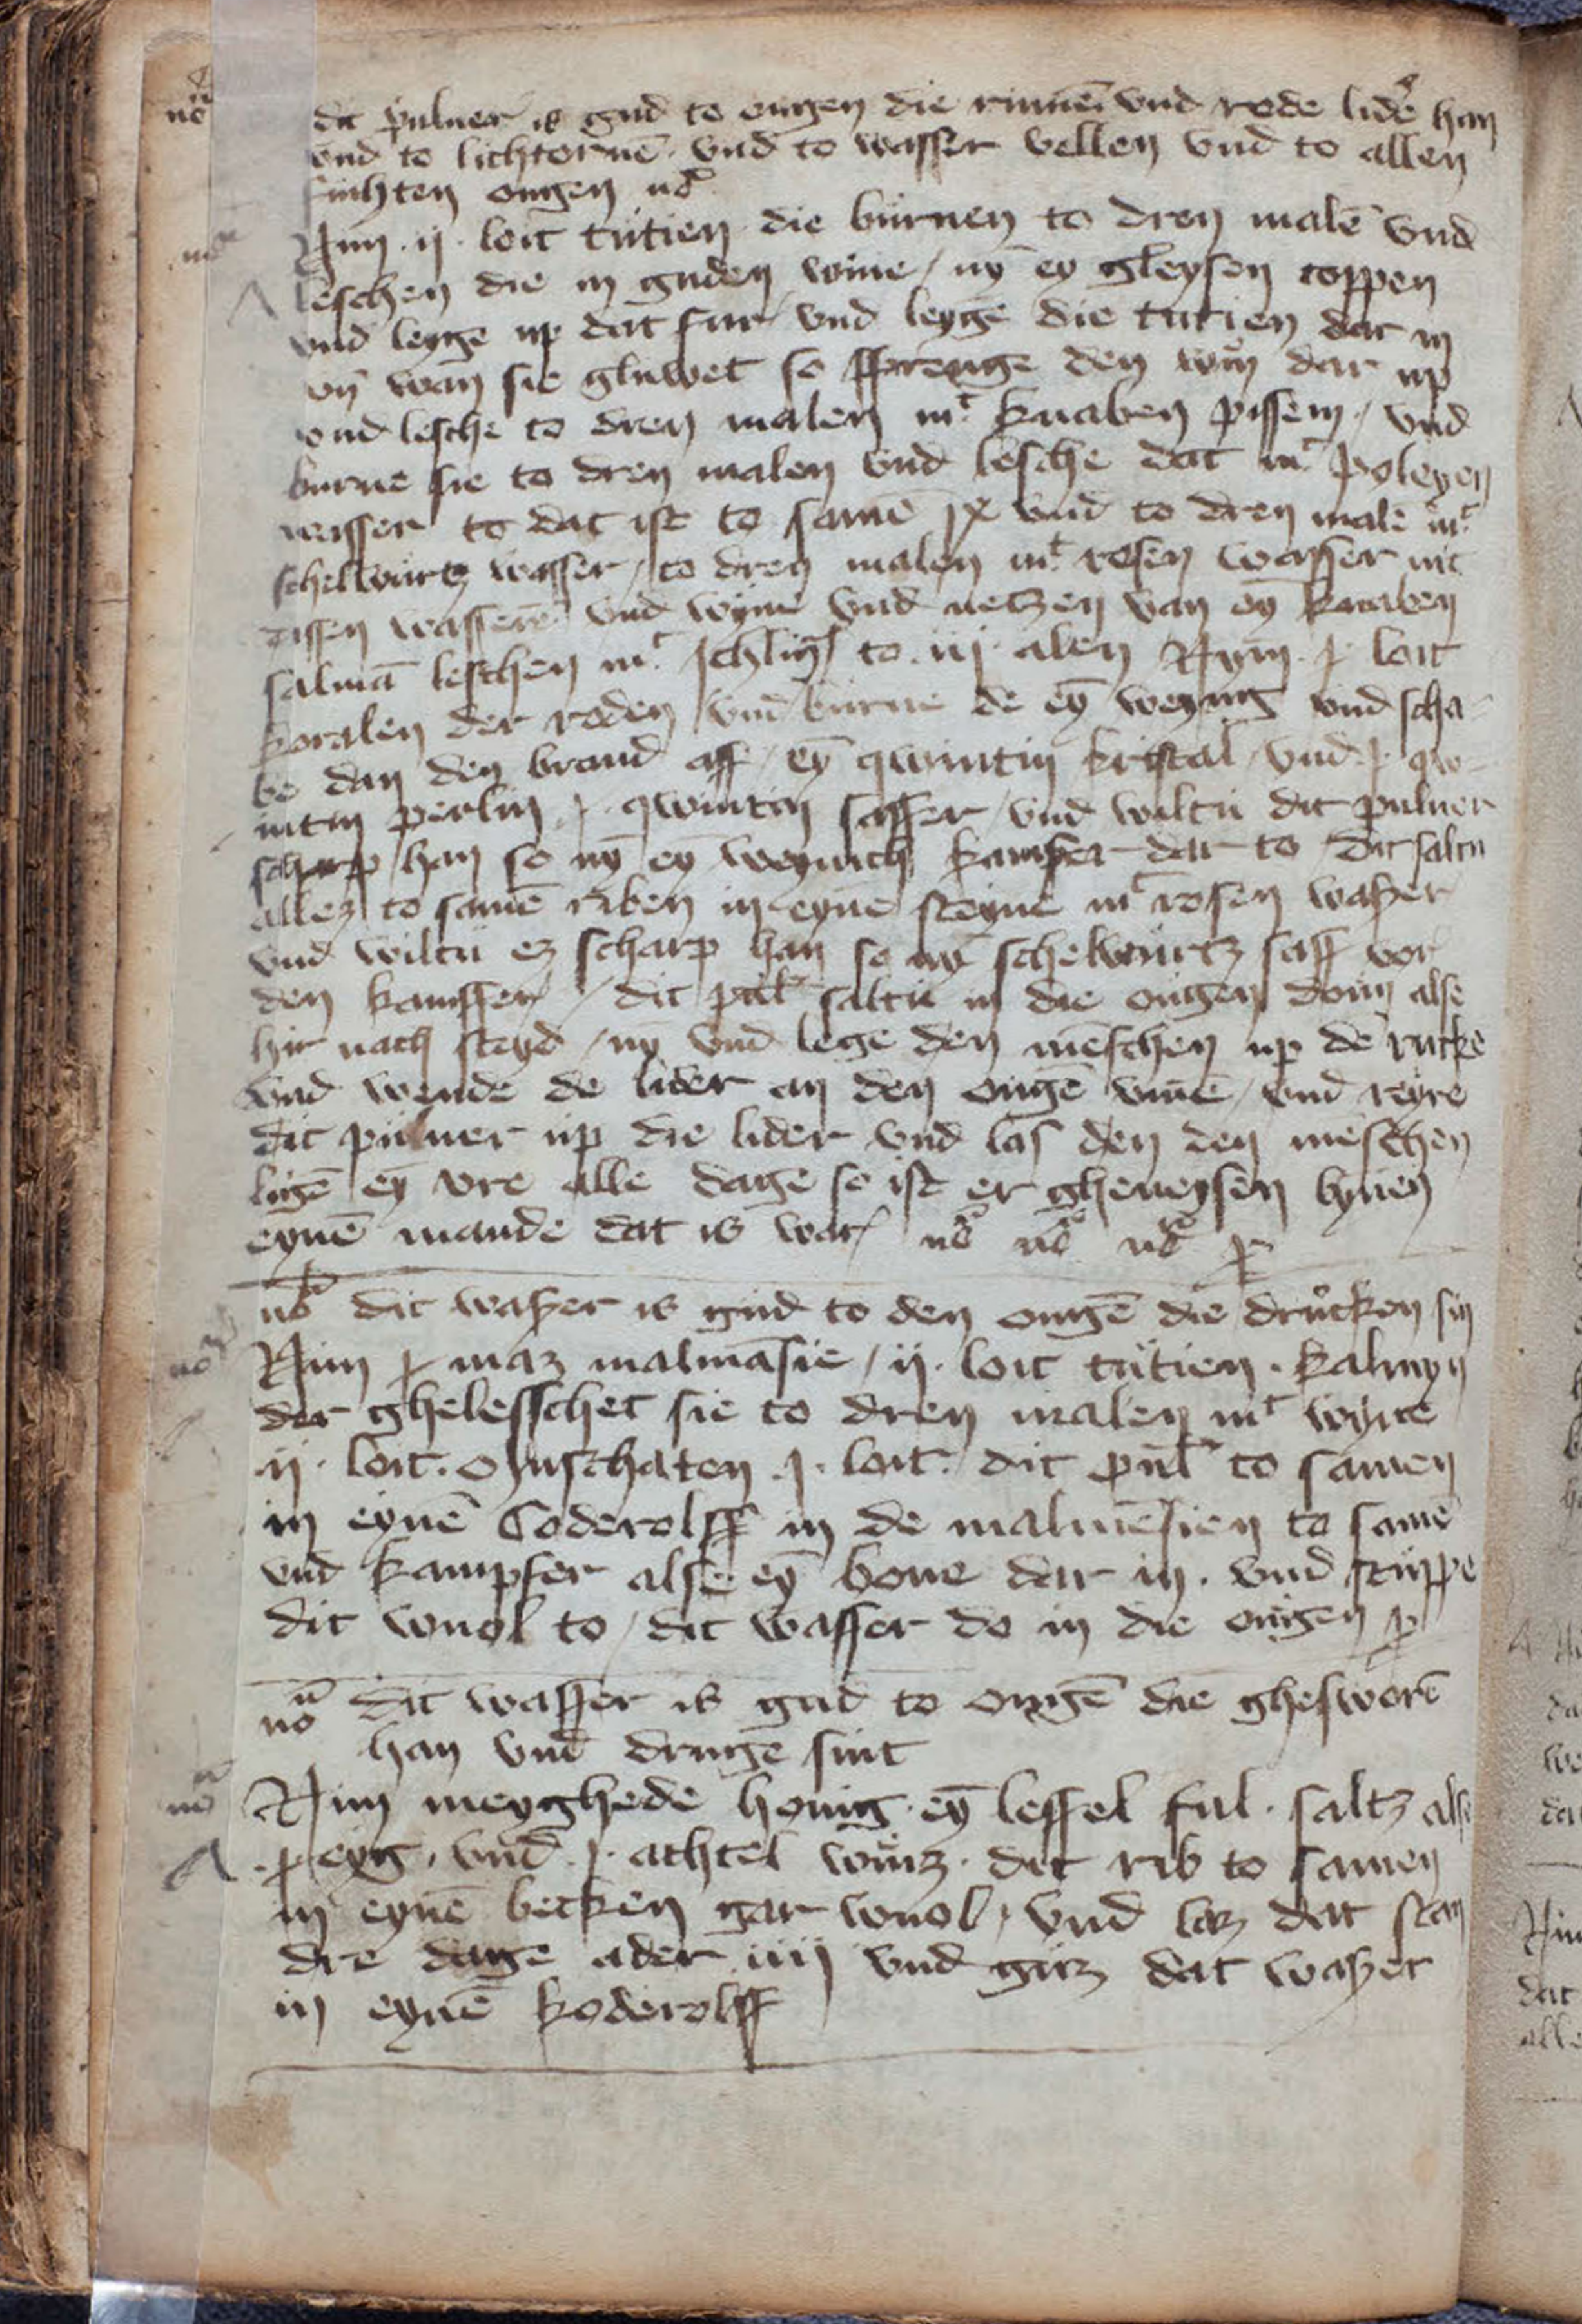 dit puluer is gud to ougen die rinnē vnd rode lidẽ han
vnd to lichtornē vnd to wasser vellen vnd to allen
fuchten ougen nō
Nim ·ij· loit tutien die burnen to dren malē vnd
leschen die in guden wine / nȳ ey gleysen toppen
vnd leyge up dat fur vnd leyge die tutien dar in
vn̄ wan sie gluwet so sprenge den win dar up
vnd lesche to dren malen mt knaben pissem / vnd
burne sie to dren malen vnd lesche dat mt poleyen
wasser to dat ist to samē ix vnd to dren malē mt
schelwurtz wasser / to dren malen mt rosen wasser mit
dissen wasserē vnd wyne vnd netzen van eȳ knaben
salmā leschen mt to iij alen Nym ·j· loit
koralen der roden vnd burne de eȳ weynig vnd scha-
be dan den brand aff / eȳ qwintin kristal / vnd ·j· qw-
intin perlin ·j· qwintin saffer / vnd wiltu dit puluer
scharp han so nȳ eȳ weynich kamfer dar to / dit saltu
allez to samē riben in eyne steyne mt rosen waszer
vnd wiltu ez scharp han so nȳ schelwurtz saff vor
den kamffer / dit pul' saltu in die ougen doun alse
hir nach steyd / nȳ vnd lege den mēschen up dē rucke
vnd wende de lider an den ougē vmē / vnd reyre
dit puluer up die lider vnd las den den meschen
ligē eȳ vre alle dage so ist er gheneysen bynen
eynē mande dat is war nō nō nō
nō dit waszer is gud to den ougē die drucken sin
Nim j maz malmasie / ij· loit tutien · kalmyn
der ghelesschet sie to dren malen mt wyne
·ij· loit · muschaten ·j· loit · dit pul' to samen
in eynē Coderolff in de malmesien to samē
vnd kampfer alse eȳ bone dar in · vnd stuppe
dit wuol to / dit wasser do in die ougen
nō dit wasser is gud to ougē die ghesworē
han vnd druge sint
Nim meyghede honig · eȳ leffel ful · saltz alse
·j· eyg · vnd ·j· achtel winz · dit rib to samen
in eynē becken gar wuol / vnd laz dat stan
dre dage ader iiij vnd guz dat waszer
in eynē koderolff